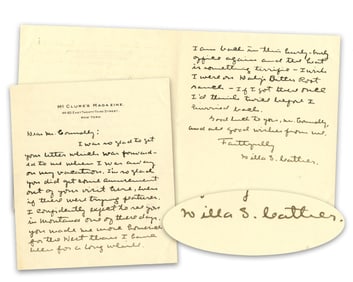 McCLURE'S MAGAZINE
44-60 EAST TWENTY-THIRD STREET,
NEW YORK
Dear Mr. Connolly:
I was so glad to get
your letter which was forward-
ed to me when I was away
on my vacation. I'm so glad
you did get some amusement
out of your visit here, even
if there were trying features.
I confidently expect to see you
in Montana one of these days,
you made me more homesick
for the West than I have
been for a long while.
I am back in this hurly-burly
office again and the heat
is something terrific - I wish
I were on Bitter Root
ranch - if I got there once
I'd think twice before I
hurried back.
Good luck to you, Mr. Connolly,
and all good wishes from me.
Faithfully
Willa S. Cather.
Willa S. Cather.